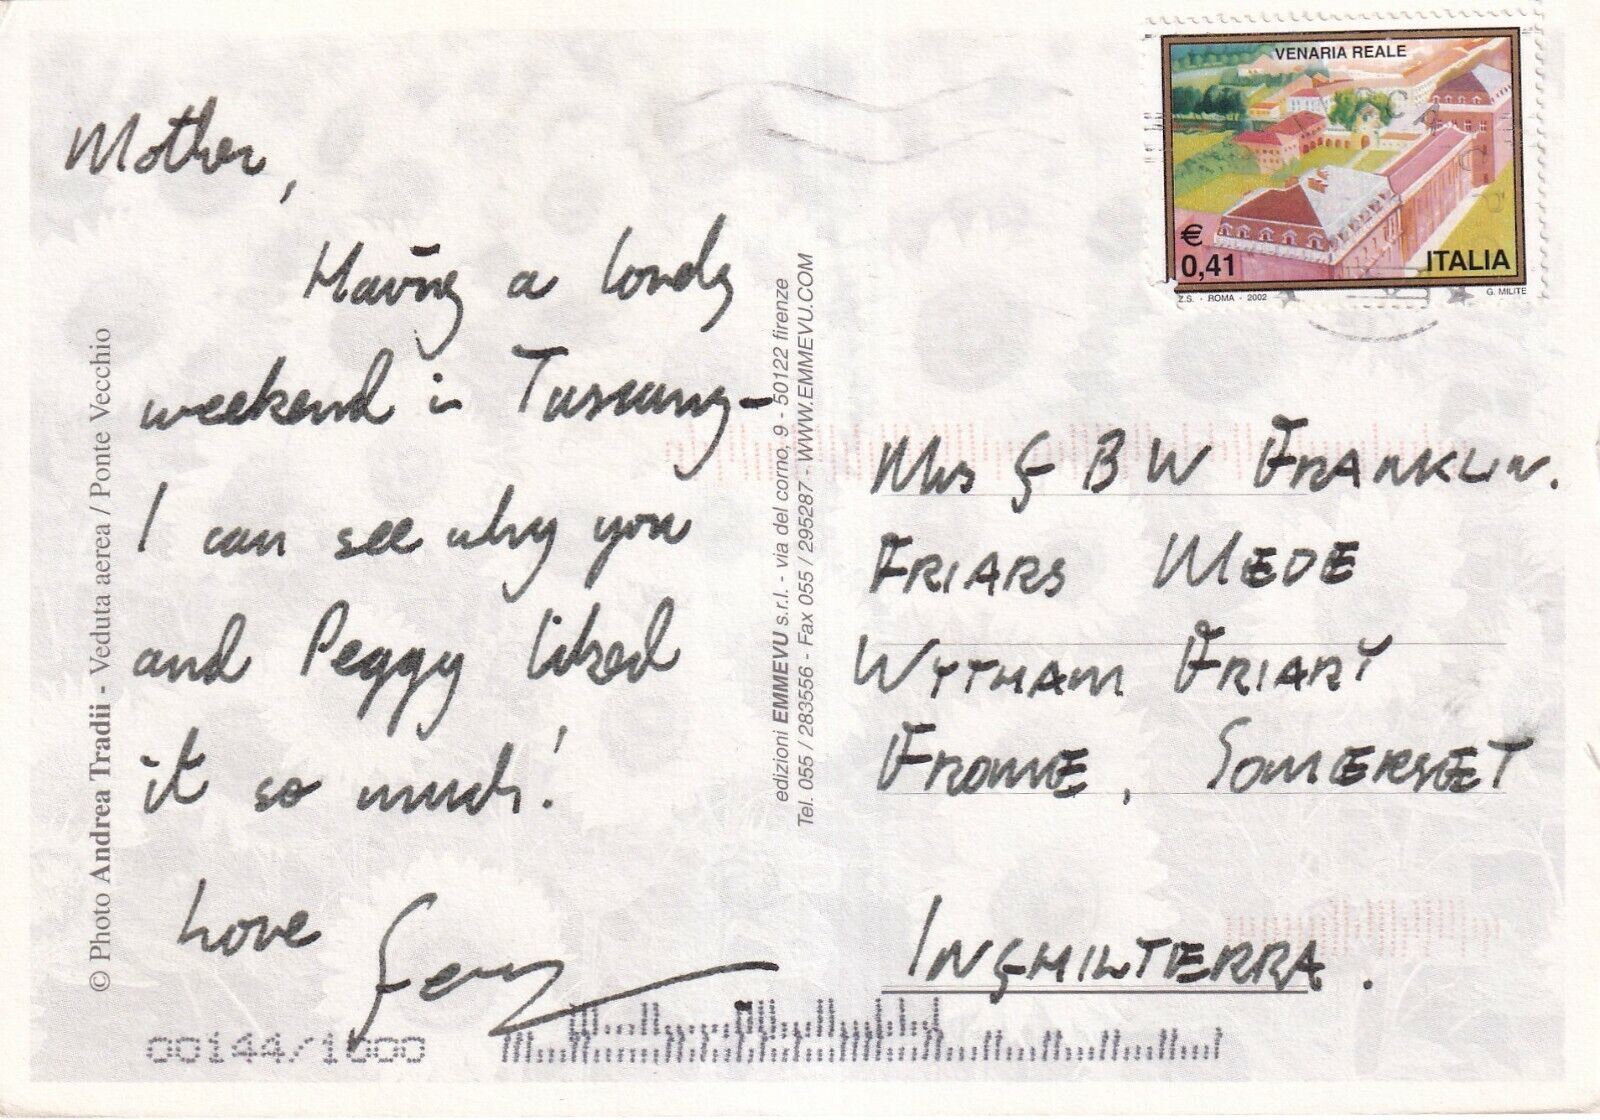 Mother,
Having a lovely
weekend in Tuscany –
I can see why you
and Peggy liked
it so much!
Love
VENARIA REALE
€
0,41
ITALIA
Z.S. · ROMA · 2002
G. MILITE
Mrs G B W FRANKLIN.
FRIARS MEDE
WYTHAM FRIARY
FROME, SOMERSET
INGHILTERRA.
© Photo Andrea Tradii - Veduta aerea / Ponte Vecchio
edizioni EMMEVU s.r.l. - via del corno, 9 - 50122 firenze
Tel. 055 / 283556 - Fax 055 / 295287 - WWW.EMMEVU.COM